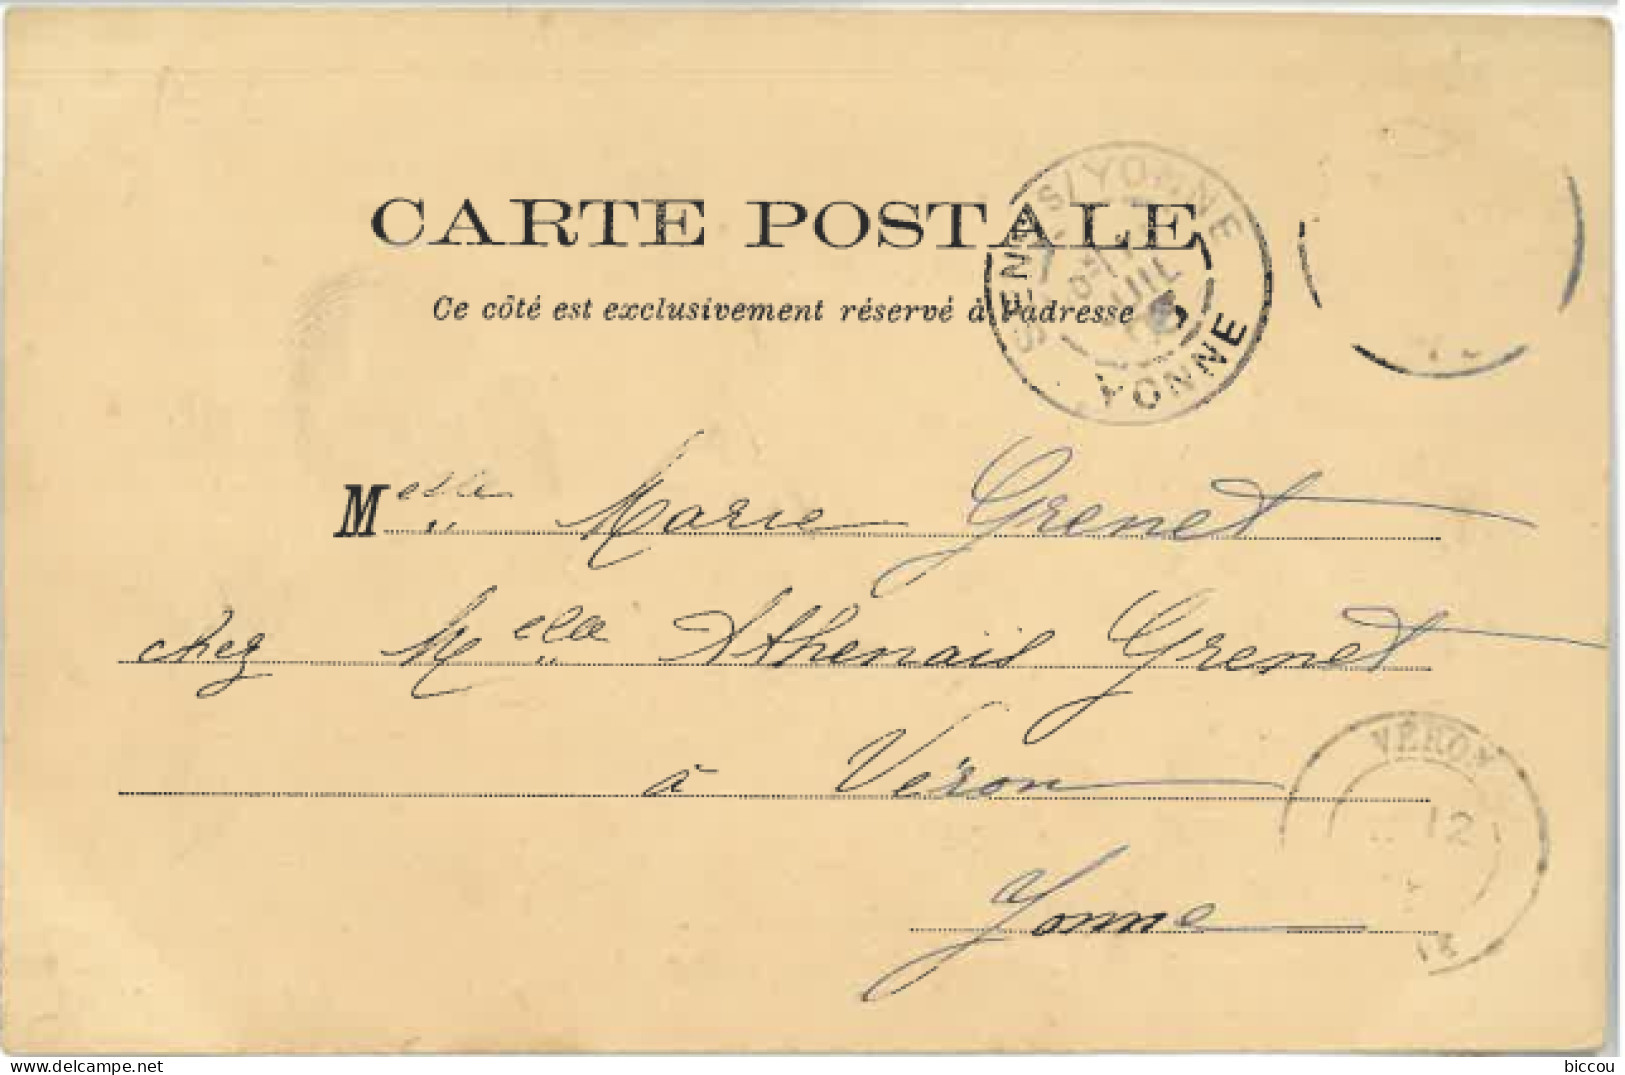 CARTE POSTALE
Ce côté est exclusivement réservé à l'adresse
SENS S/YONNE
JUIL
03
YONNE
Melle Marie Grenet
chez Melle Athenaïs Grenet
à Véron
Yonne
VÉRON
12
biccou